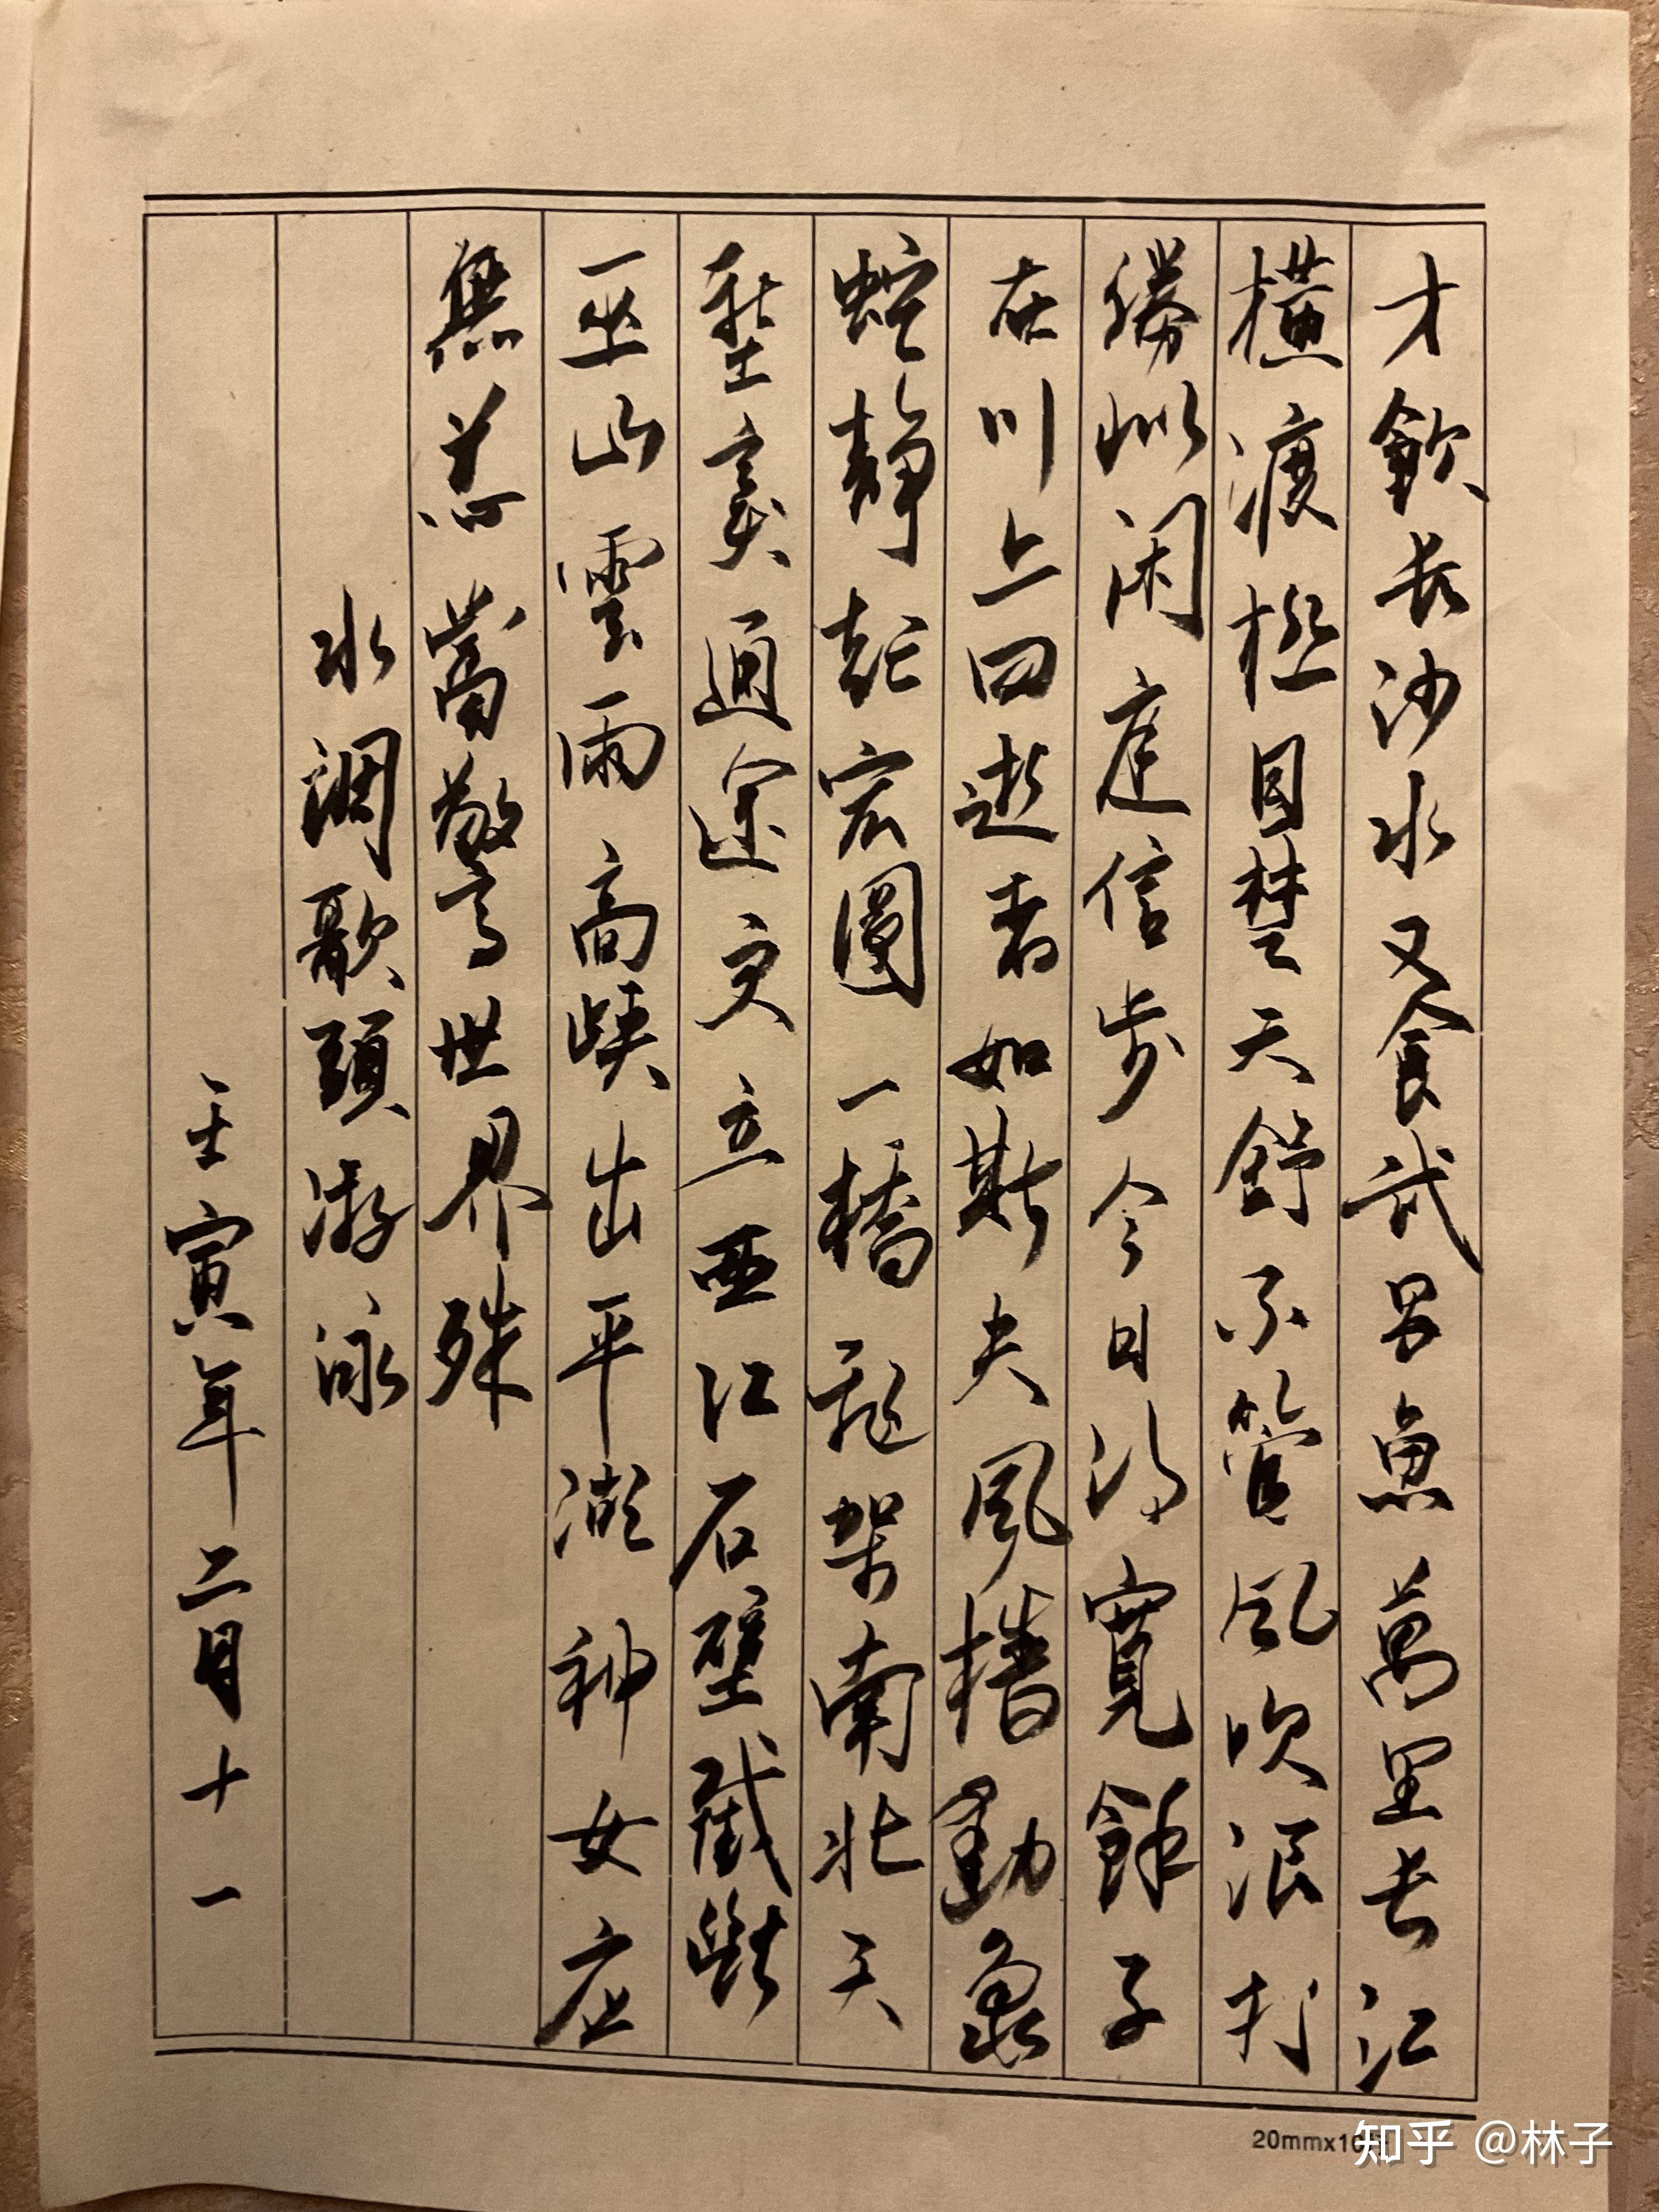 才飲长沙水又食武昌魚萬里长江
橫渡極目楚天舒不管風吹浪打
勝似闲庭信步今日得寬餘子
在川上曰逝者如斯夫風檣動龜
蛇靜起宏圖一橋飛架南北天
塹變通途更立西江石壁截斷
巫山雲雨高峽出平湖神女应
無恙當驚世界殊
水調歌頭游泳
壬寅年二月十一
20mmx10
知乎 @林子